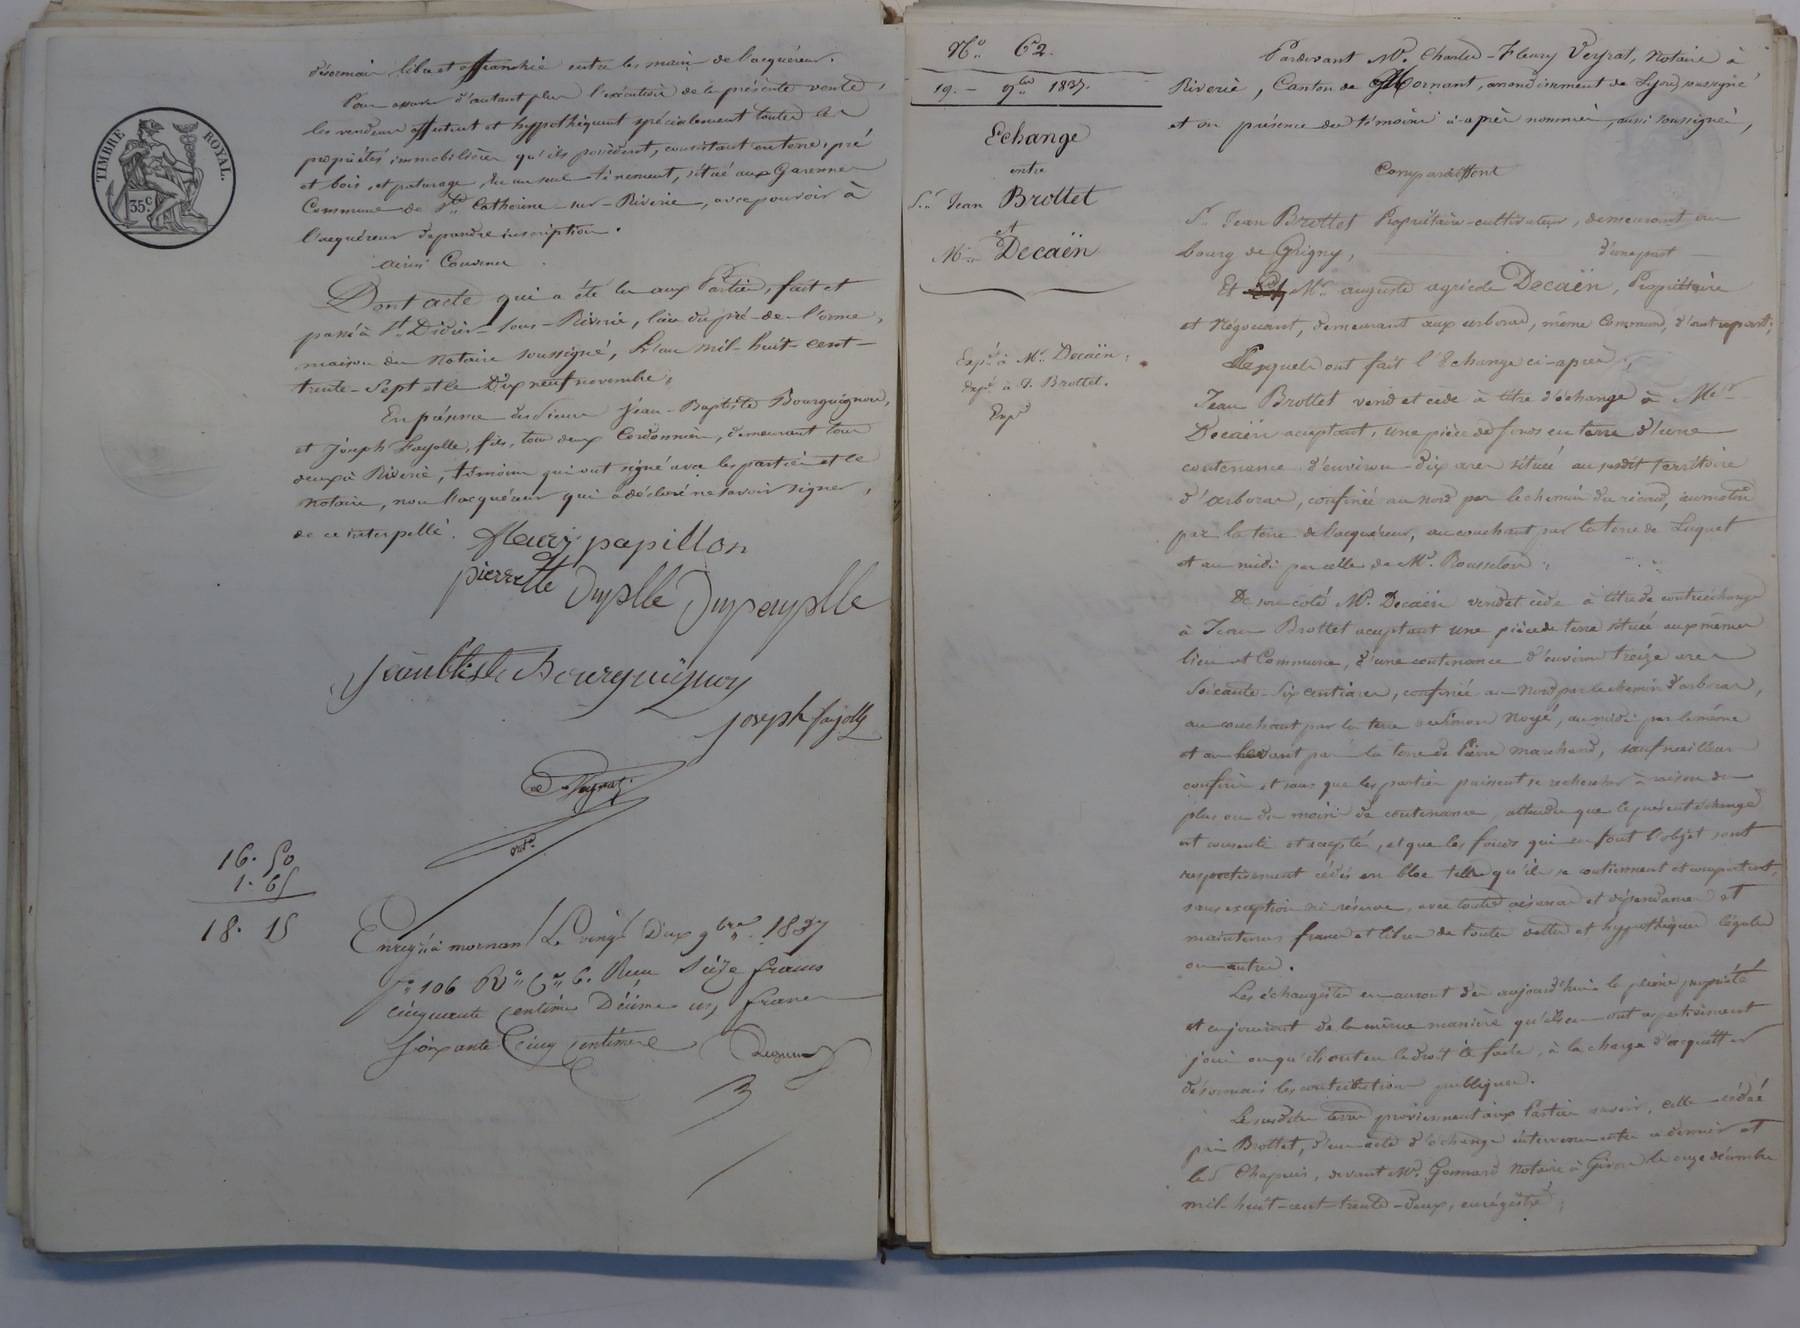 désormais libre et affranchie entre les mains de l'acquéreur.
Pour assurer d'autant plus l'exécution de la présente vente,
les vendeurs affectent et hypothèquent spécialement toutes les
propriétés immobilières qu'ils possèdent, consistant en terre, pré
et bois, et paturage, en un seul tinement, situé aux Garennes
Commune de Ste Catherine-sur-Riverie, avec pouvoir à
l'acquéreur de prendre inscription.
ainsi Convenu
TIMBRE ROYAL.
35c
Dont acte qui a été lu aux Parties, fait et
passé à St Didier-sous-Riverie, lieu du pré-de-l'orme,
maison du Notaire soussigné, l'an mil-huit-cent-
trente-Sept et le Dix neuf novembre,
En présence des Sieurs Jean-Baptiste Bourguignon,
et Joseph Fayolle, fils, tous deux Cordonniers, demeurant tous
deux à Riverie, témoins qui ont signé avec les parties et le
Notaire, non l'acquéreur qui a déclaré ne savoir signer,
de ce interpellé.
fleury papillon
pierrette
jeanbtiste Bourguignon
joseph fayolle
notre
16. 50
1. 65
18. 15
Enregré à mornant Le vingt Deux 9bre 1837
fo 106 Ro Cn 6. Reçu Seize francs
cinquante centimes Décime un franc
soixante Cinq centimes
No 62.
19. - 9bre 1837.
Echange
entre
Sr Jean Brottet
et
Mr Decaën
Expé à Mr Decaën;
Expé à J. Brottet.
Expé
Pardevant Me. Charles-Fleury Veyrat, Notaire à
Riverie, Canton de Mornant, arrondissement de Lyon, soussigné
et en présence des témoins ci-après nommés, aussi soussignés,
Comparaissent
Sr Jean Brottet Propriétaire-cultivateur, demeurant au
bourg de Grigny, d'une part
Et Mr auguste agricole Decaën, Propriétaire
et Négociant, demeurant aux arboras, même Commune, d'autre part;
Lesquels ont fait l'Echange ci-après;
Jean Brottet vend et cède à titre d'échange à Mr
Decaën acceptant, une pièce de fonds en terre d'une
contenance d'environ dix ares située au susdit territoire
d'arboras, confinée au nord par le chemin du recours, au matin
par la terre de l'acquéreur, au couchant par la terre de Luquet
et au midi par celle de Mr. Rousselon;
De son côté Mr. Decaën vend et cède à titre de contréchange
à Jean Brottet acceptant une pièce de terre située aux mêmes
lieu et Commune, d'une contenance d'environ treize ares
Soixante-Six centiares, confinée au Nord par le chemin d'arboras,
au couchant par la terre de Simon Noyé, au midi par le même
et au levant par la terre de Pierre Marchand, sauf meilleurs
confins et sans que les parties puissent se rechercher à raison du
plus ou du moins de contenance, attendu que le présent échange
est consenti et accepté, et que les fonds qui en font l'objet sont
respectivement cédés en bloc tels qu'ils se contiennent et comportent,
sans exception ni réserve, avec toutes aisances et dépendances et
maintenus francs et libres de toutes dettes et hypothèques légales
ou autres.
Les échangistes en auront dès aujourd'hui la pleine propriété
et en jouiront de la même manière qu'ils en ont respectivement
joui ou qu'ils ont eu le droit de faire, à la charge d'acquitter
désormais les contributions publiques.
Les susdites terres proviennent aux Parties savoir, celle cédée
par Brottet, d'un acte d'échange intervenu entre ce dernier et
les Chapuis, devant Me. Gomard Notaire à Givors le onze décembre
mil-huit-cent-trente-deux, enregistré;